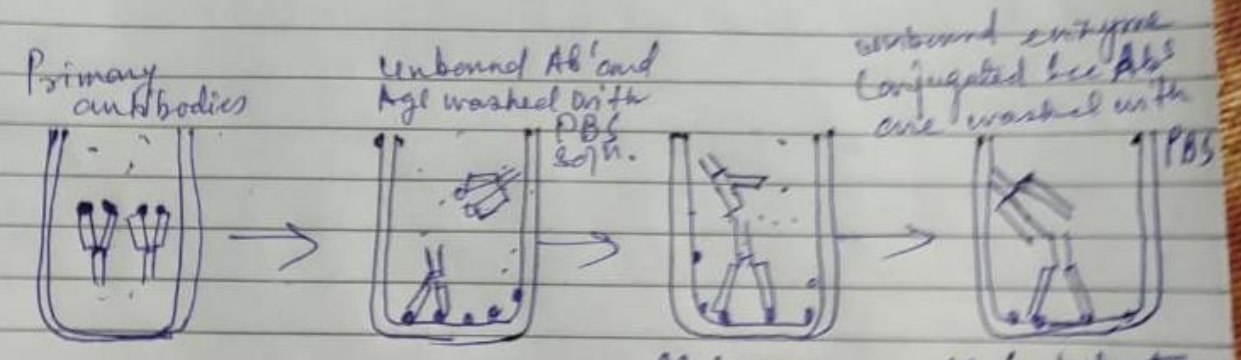 Primary
antibodies
Unbound Ab' and
Ags washed with
PBS
soln.
unbound enzyme
Conjugated Sec Abs
are washed with
PBS